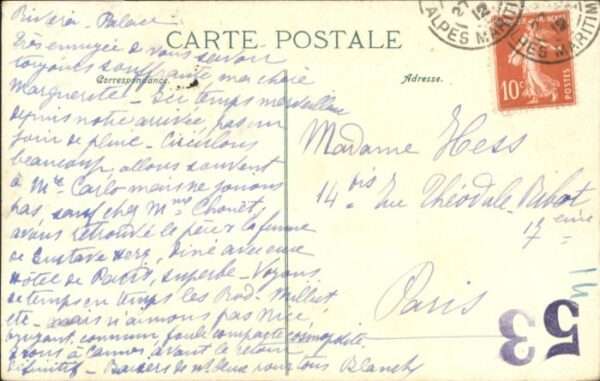 Riviera-Palace
CARTE POSTALE
Correspondance.
Adresse.
Très ennuyée de vous savoir
toujours souffrante, ma chère
Marguerite - Ici temps merveilleux
depuis notre arrivée, pas un
jour de pluie - Circulons
beaucoup, allons souvent
à Mte Carlo mais ne jouons
pas, sauf chez Mme Chouet,
avons retrouvé le père & la femme
de Gustave Herz, dîné avec eux
Hôtel de Paris, superbe - Voyons
de temps en temps les Rod.
etc - mais n'aimons pas Nice,
bruyant, commun, foule compacte cosmopolite.
à Cannes, avant le retour
définitif - Baisers de nous deux pour tous Blanche
Madame Hess
14 bis Rue Théodule-Ribot
17 eme
Paris
10c
POSTES
12
ALPES MARITIMES
53